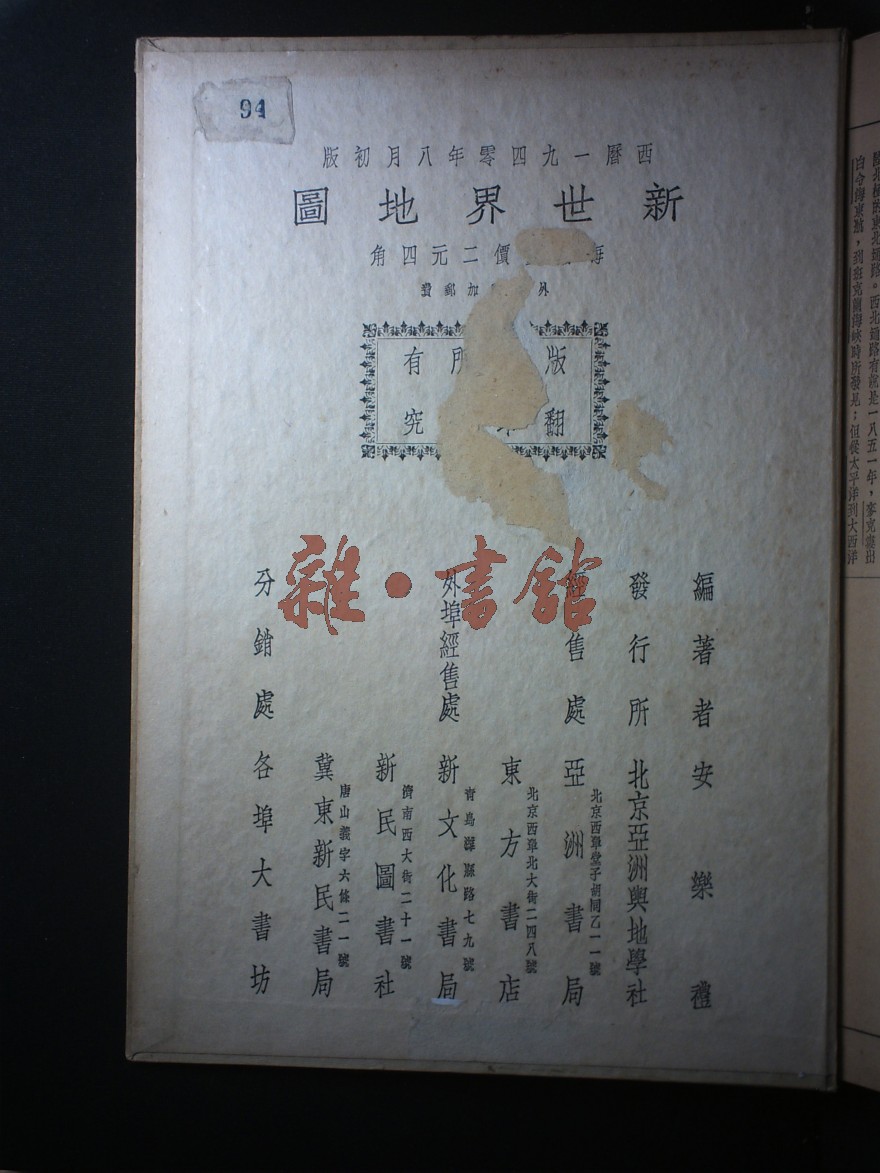 94
西曆一九四零年八月初版
新世界地圖
每 價二元四角
外 加郵費
版 所有
翻 究
編著者 安樂禮
發行所 北京亞洲輿地學社
經售處 北京西單堂子胡同乙一一號 亞洲書局
北京西單北大街二四八號 東方書店
外埠經售處 青島 縣路七九號 新文化書局
濟南西大街二十一號 新民圖書社
唐山義字六條二一號 冀東新民書局
分銷處 各埠大書坊
雜·書館
陸北極的東北通路。西北通路有就是一八五一年,麥克婁由
白令海東航,到班克爾海峽時所發見;但從太平洋到大西洋